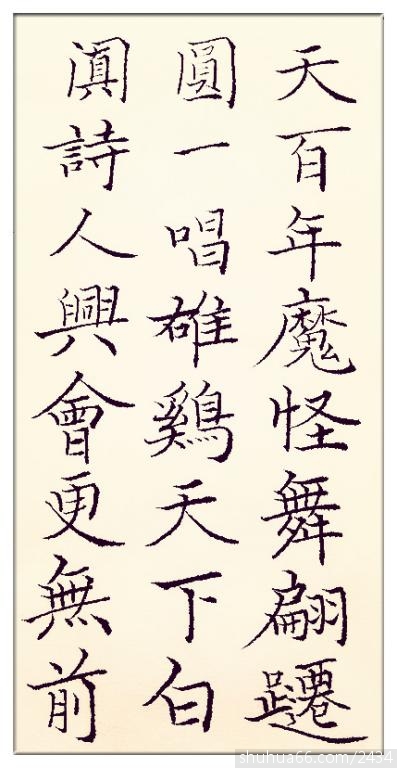 天百年魔怪舞翩躚
圓一唱雄鷄天下白
闐詩人興會更無前
shuhua66.com/2434